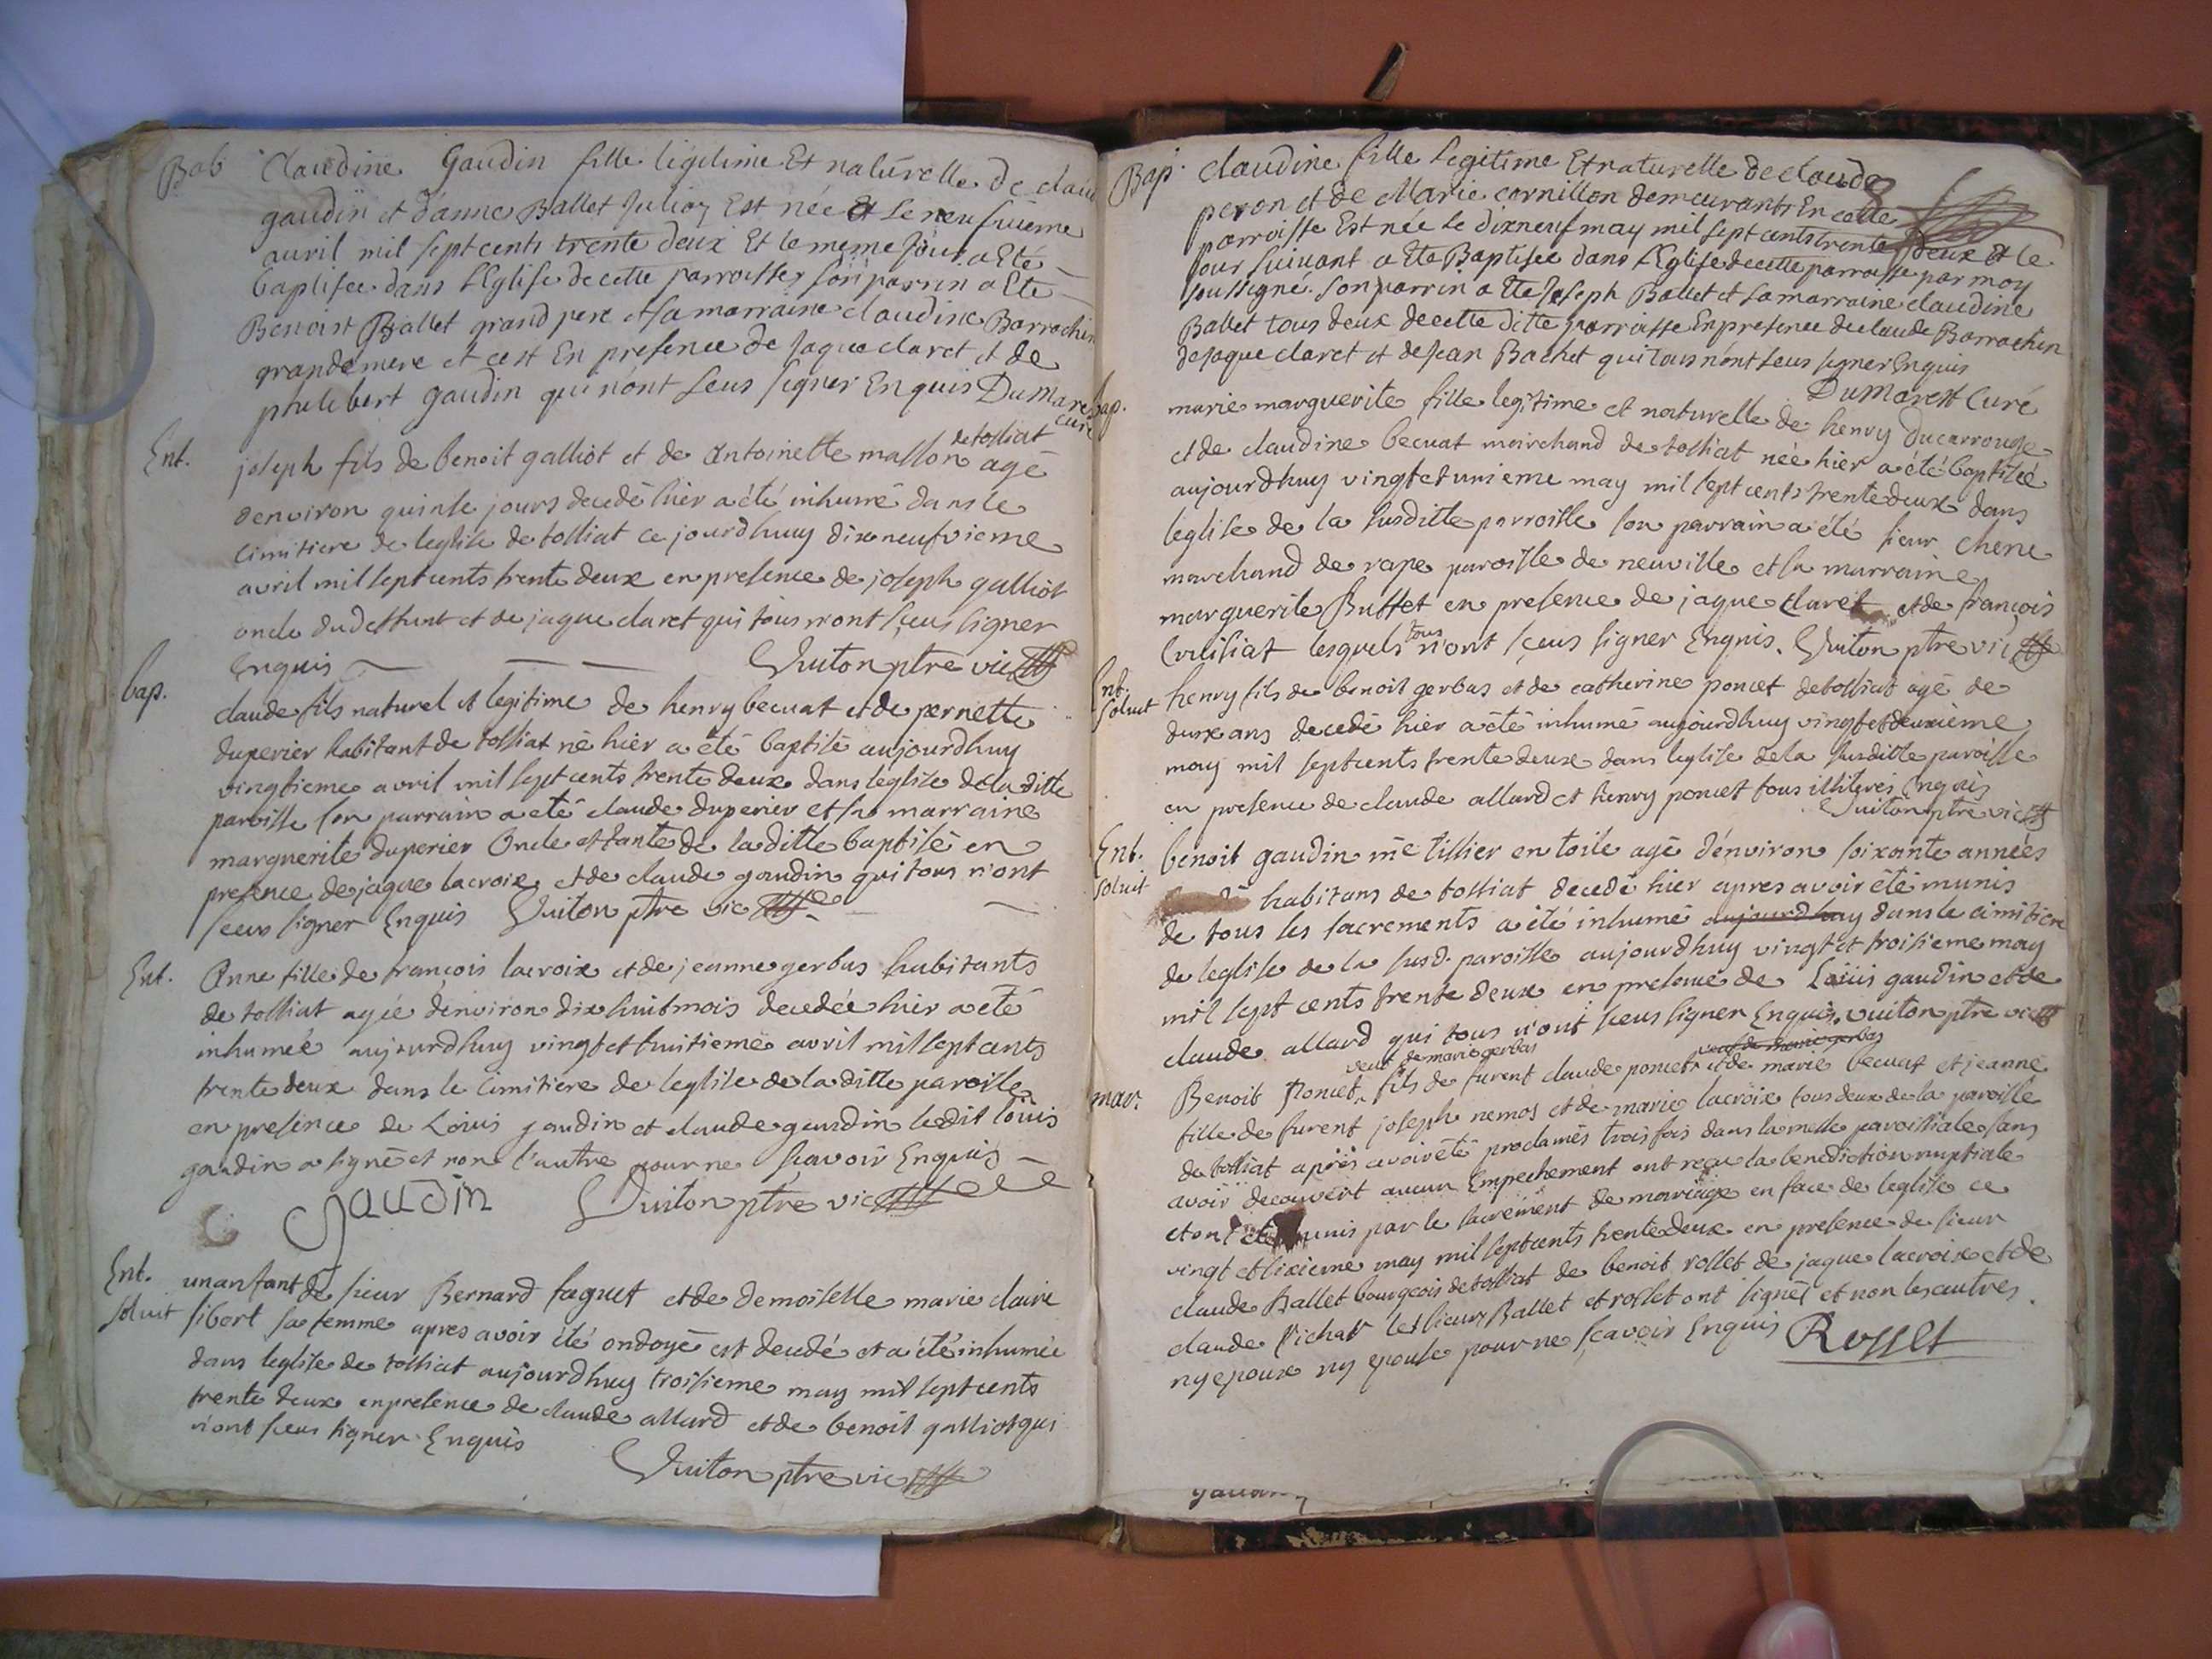 Bab Claudine Gaudin fille légitime Et naturelle de claude
gaudin et d'anne Ballet Julion Est née et le neufvieme
avril mil sept cents trente deux Et le meme jour a Eté
baptisee dans l'Eglise de cette parroisse son parrin a Ete
Benoist Ballet grand pere et sa marraine claudine Barrachin
grande mere et cest En presence de Jaque claret et de
philibert gaudin qui n'ont seus signer Enquis Dumarest
curé
Ent. joseph fils de benoit galliot et de Antoinette masson de tossiat agé
denviron quinse jours decedé hier a été inhumé dans le
cimitiere de leglise de tossiat ce jourdhuy dixneufvieme
avril mil sept cents trente deux en presence de joseph galliot
oncle dud deffunt et de jaque claret qui tous n'ont sçeus signer
Enquis Vuiton ptre vic
bap. claude fils naturel et legitime de henry becuat et de pernette
duperier habitant de tossiat né hier a été baptisé aujourdhuy
vingtieme avril mil sept cents trente deux dans leglise de la ditte
paroisse son parrain a eté claude duperier et sa marraine
marguerite duperier Oncle et tante de la ditte baptisé en
presence de jaque lacroix et de claude gaudin qui tous n'ont
sceus signer Enquis Vuiton ptre vic
Ent. Anne fille de françois lacroix et de jeanne gerbas habitants
de tossiat agée denviron dix huit mois decedée hier a eté
inhumée aujourdhuy vingt et huitieme avril mil sept cents
trente deux dans le cimitiere de leglise de la ditte paroisse
en presence de Loüis gaudin et claude gaudin ledit loüis
gaudin a signé et non l'autre pour ne scavoir Enquis
Gaudin Vuiton ptre vic
Ent. un anfant de sieur Bernard faguet et de demoiselle marie claire
soluit sibert sa femme apres avoir été ondoyé est decedé et a été inhumée
dans leglise de tossiat aujourdhuy troisieme may mil sept cents
trente deux en presence de claude allard et de benoit galliot qui
n'ont sceus signer Enquis
Vuiton ptre vic
Bap. claudine fille Legitime Et naturelle de claude
peron et de Marie cornillon demeurants En cette
parroisse Est née le dixneuf may mil sept cents trente deux et le
jour suivant a Ete Baptisée dans l'Eglise de cette parroisse par moy
soussigné. son parrin a Ete Joseph Ballet et sa marraine claudine
Ballet tous deux de cette ditte parroisse En presence de claude Barrachin
de jaque claret et de Jean Bachet qui tous n'ont seus signer Enquis
DuMarest Curé
bap. marie marguerite fille legitime et naturelle de henry ducarrouge
et de claudine becuat marchand de tossiat née hier a été baptisée
aujourdhuy vingt et unieme may mil sept cents trente deux dans
leglise de la susditte parroisse son parrain a été sieur chene
marchand de rape paroisse de neuville et sa marraine
marguerite Buffet en presence de jaque claret et de françois
lesquels tous n'ont sçeus signer Enquis. Vuiton ptre vic
Ent. henry fils de benoit gerbas et de catherine poncet de tossiat agé de
soluit deux ans decedé hier a été inhumé aujourdhuy vingt et deuxieme
may mil sept cents trente deux dans leglise de la susditte paroisse
en presence de claude allard et henry poncet tous illiterés Enquis
Vuiton ptre vic
Ent. benoit gaudin me tissier en toile agé d'environ soixante années
soluit habitans de tossiat decedé hier apres avoir été munis
de tous les sacrements a été inhumé aujourdhuy dans le cimitiere
de leglise de la susd. paroisse aujourdhuy vingt et troisieme may
mil sept cents trente deux en presence de Loüis gaudin et de
claude allard qui tous n'ont sceus signer Enquis. Vuiton ptre vic
veuf de marie gerbas veuf de marie gerbas
mar. Benoit Poncet fils de furent claude poncet et de marie becuat et jeanne
fille de furent joseph nemos et de marie lacroix tous deux de la paroisse
de tossiat après avoir été proclamés trois fois dans la messe paroissiale sans
avoir decouvert aucun Empechement ont reçu la benediction nuptiale
et ont été unis par le sacrement de mariage en face de leglise ce
vingt et sixieme may mil sept cents trente deux en presence de sieur
claude Ballet bourgeois de tossiat de benoit rosset de jaque lacroix et de
claude Pichat les sieurs Ballet et rosset ont signés et non les autres
ny epoux ny epouse pour ne sçavoir Enquis Rosset